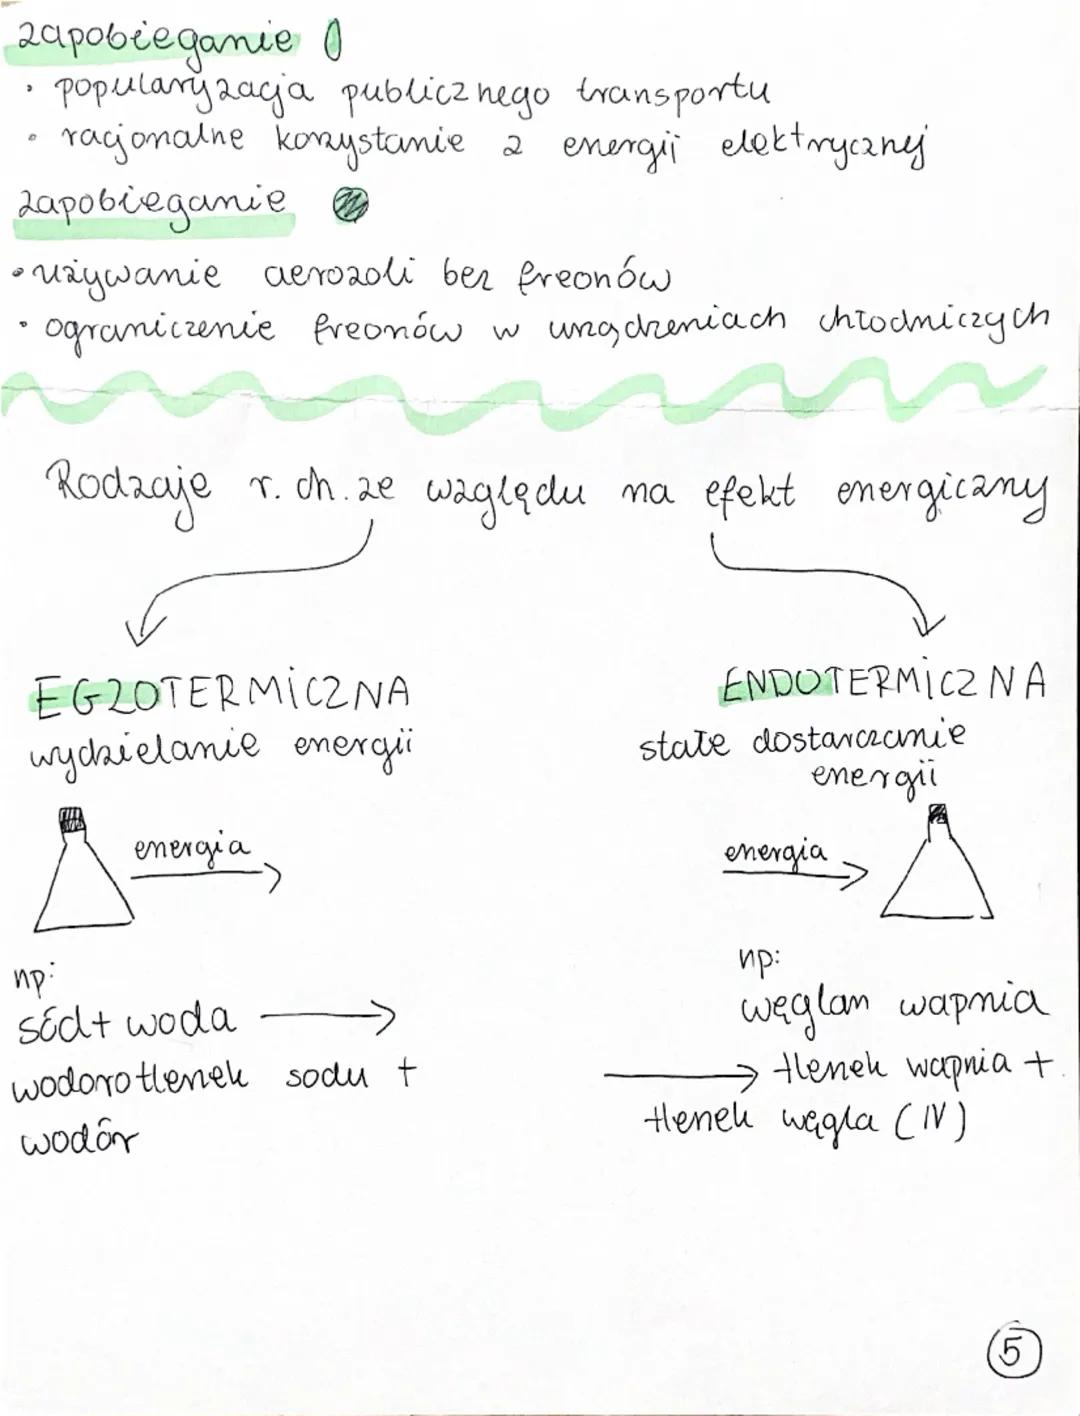 zapobieganie
• popularyzacja publicznego transportu
• racjonalne korzystanie z energii elektrycznej
zapobieganie
• używanie aerozoli bez freonów
• ograniczenie freonów w urządzeniach chłodniczych
Rodzaje r. ch. ze względu na efekt energiczny
EGZOTERMICZNA
wydzielanie energii
energia
np:
sód + woda →
wodorotlenek sodu +
wodór
ENDOTERMICZNA
stałe dostarczanie
energii
energia
np:
węglan wapnia
→ tlenek wapnia +
tlenek węgla (IV)
5